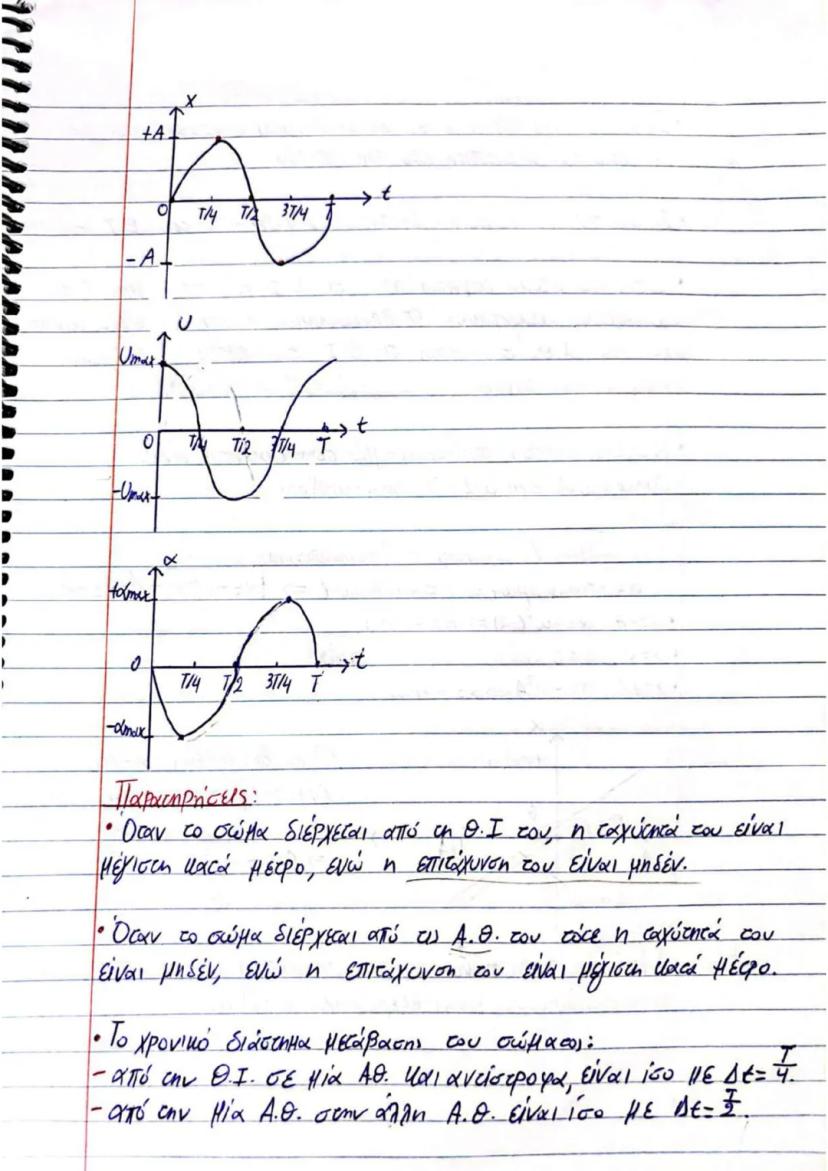 x
+A
0 T/4 T/2 3T/4 T t
-A
U
Umax
0 T/4 T/2 3T/4 T t
-Umax
α
+αmax
0 T/4 T/2 3T/4 T t
-αmax
Παρατηρήσεις:
• Όταν το σώμα διέρχεται από τη Θ.Ι του, η ταχύτητά του είναι
μέγιστη κατά μέτρο, ενώ η επιτάχυνση του είναι μηδέν.
• Όταν το σώμα διέρχεται από τις Α.Θ. του τότε η ταχύτητά του
είναι μηδέν, ενώ η επιτάχυνση του είναι μέγιστη κατά μέτρο.
• Το χρονικό διάστημα μετάβασης του σώματος:
- από την Θ.Ι. σε μία Α.Θ. και αντίστροφα, είναι ίσο με Δt = T/4.
- από την μία Α.Θ. στην άλλη Α.Θ. είναι ίσο με Δt = T/2.